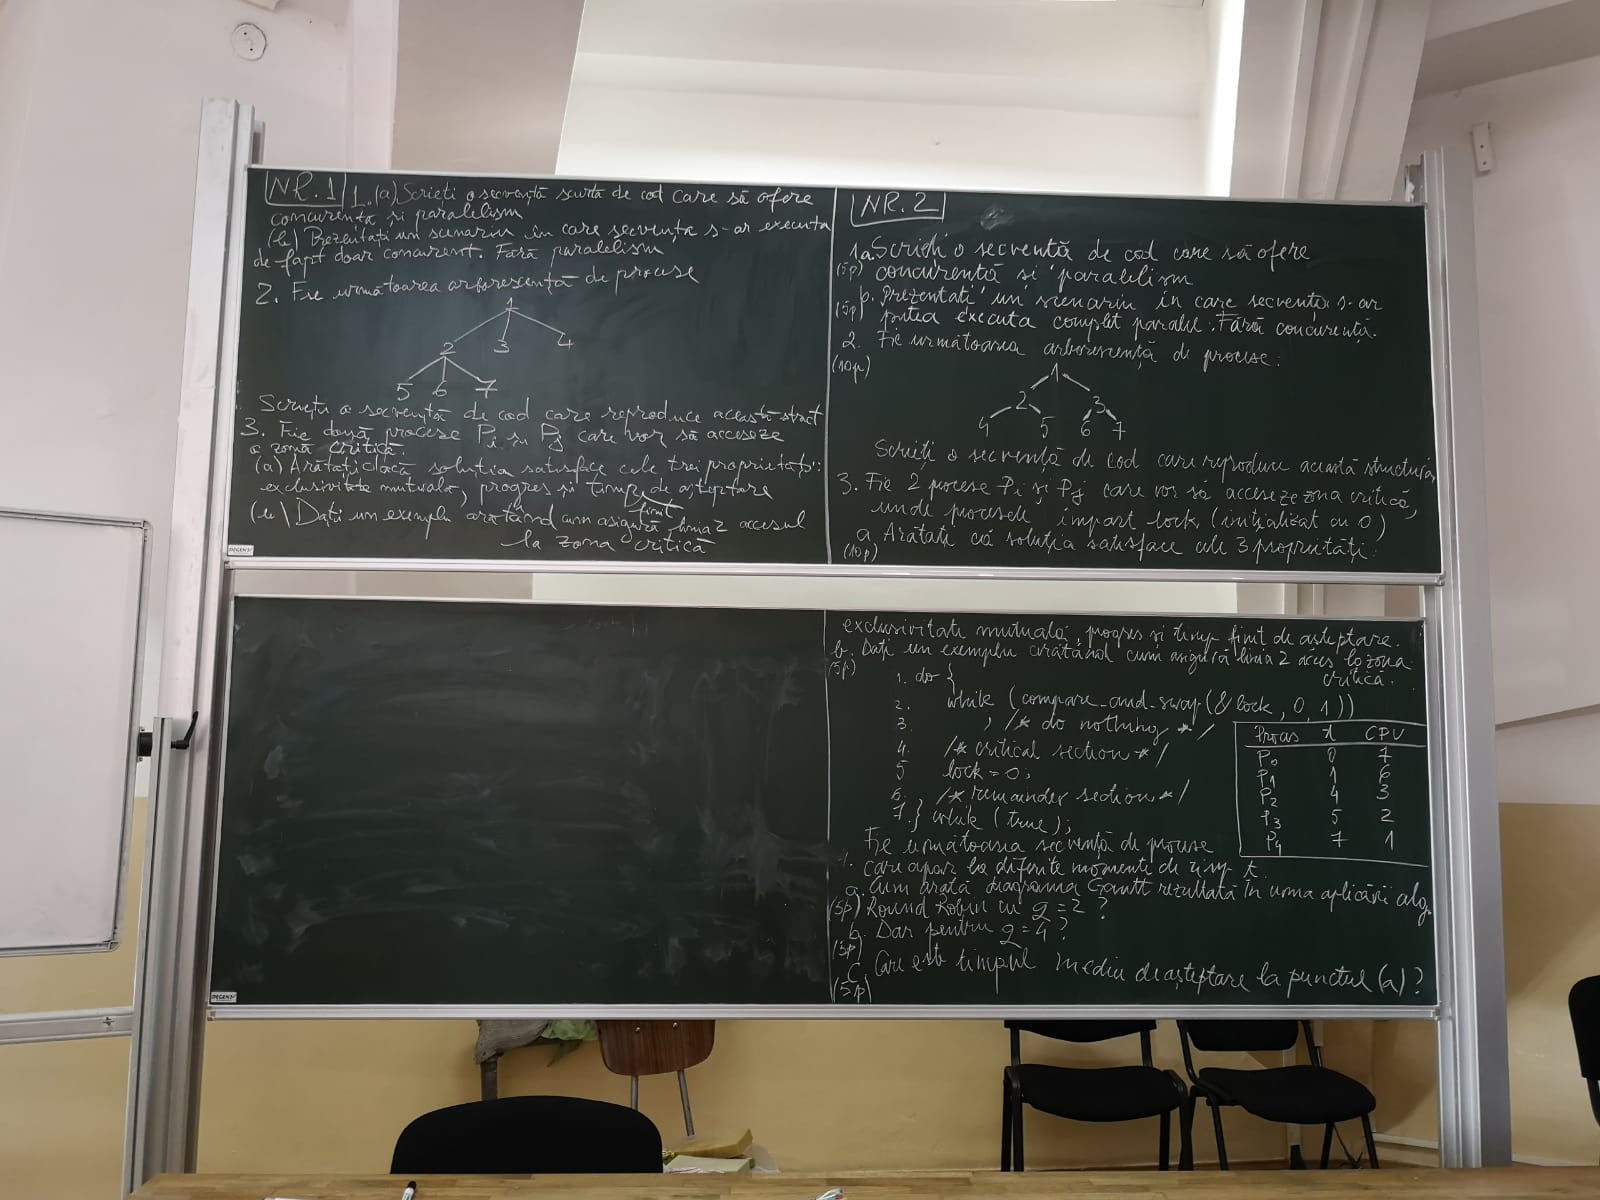 NR. 1 1. (a) Scrieți o secvență scurtă de cod care să ofere
concurență și paralelism
(b) Prezentați un scenariu în care secvența s-ar executa
de fapt doar concurent. Fără paralelism
2. Fie următoarea arborescență de procese
1
2 3 4
5 6 7
Scrieți o secvență de cod care reproduce această struct
3. Fie două procese Pi și Pj care vor să acceseze
o zonă critică.
(a) Arătați dacă soluția satisface cele trei proprietăți:
exclusivitate mutuală, progres și timp de așteptare
finit
(b) Dați un exemplu arătând cum asigură linia 2 accesul
la zona critică
NR. 2
1a. Scrieți o secvență de cod care să ofere
(5p) concurență și paralelism
b. Prezentați un scenariu în care secvența s-ar
(5p) putea executa complet paralel. Fără concurență.
2. Fie următoarea arborescență de procese:
(10p)
1
2 3
4 5 6 7
Scrieți o secvență de cod care reproduce această structură
3. Fie 2 procese Pi și Pj care vor să acceseze zona critică,
unde procesele împart lock (inițializat cu 0)
a. Arătați că soluția satisface cele 3 proprietăți:
(10p)
exclusivitate mutuală, progres și timp finit de așteptare.
b. Dați un exemplu arătând cum asigură linia 2 acces la zona
(5p) critică.
1. do {
2. while (compare_and_swap(&lock, 0, 1))
3. ; /* do nothing */
4. /* critical section */
5 lock = 0;
6. /* remainder section */
7. } while (true);
Proces t CPU
P0 0 7
P1 1 6
P2 4 3
P3 5 2
P4 7 1
Fie următoarea secvență de procese
care apar la diferite momente de timp t.
a. Cum arată diagrama Gantt rezultată în urma aplicării alg.
(5p) Round Robin cu q = 2 ?
b. Dar pentru q = 4 ?
c. Care este timpul mediu de așteptare la punctul (a) ?
(5p)